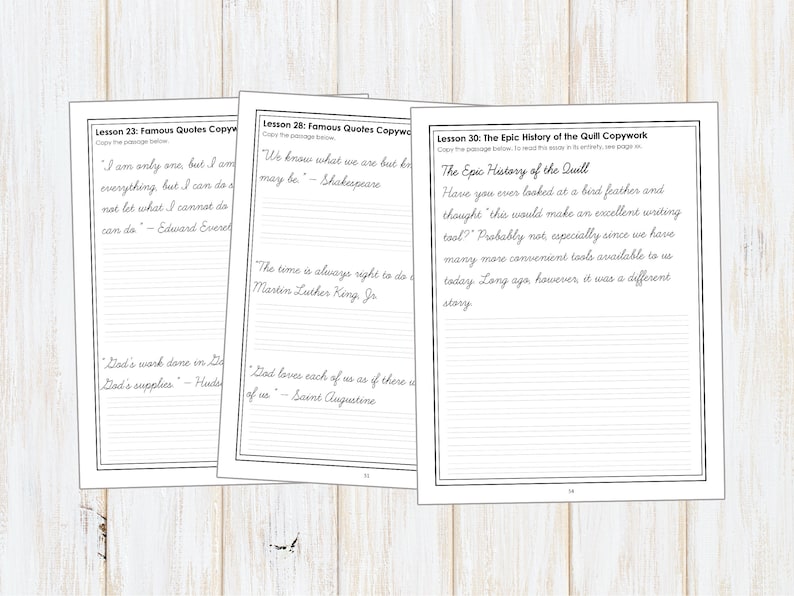 Lesson 23: Famous Quotes Copyw
Copy the passage below.
"I am only one, but I am
everything, but I can do s
not let what I cannot do
can do." – Edward Everet
"God's work done in Go
God's supplies." – Huds
Lesson 28: Famous Quotes Copywo
Copy the passage below.
"We know what we are but kn
may be." – Shakespeare
"The time is always right to do
Martin Luther King, Jr.
"God loves each of us as if there w
of us." – Saint Augustine
Lesson 30: The Epic History of the Quill Copywork
Copy the passage below. To read this essay in its entirety, see page xx.
The Epic History of the Quill
Have you ever looked at a bird feather and
thought "this would make an excellent writing
tool?" Probably not, especially since we have
many more convenient tools available to us
today. Long ago, however, it was a different
story.